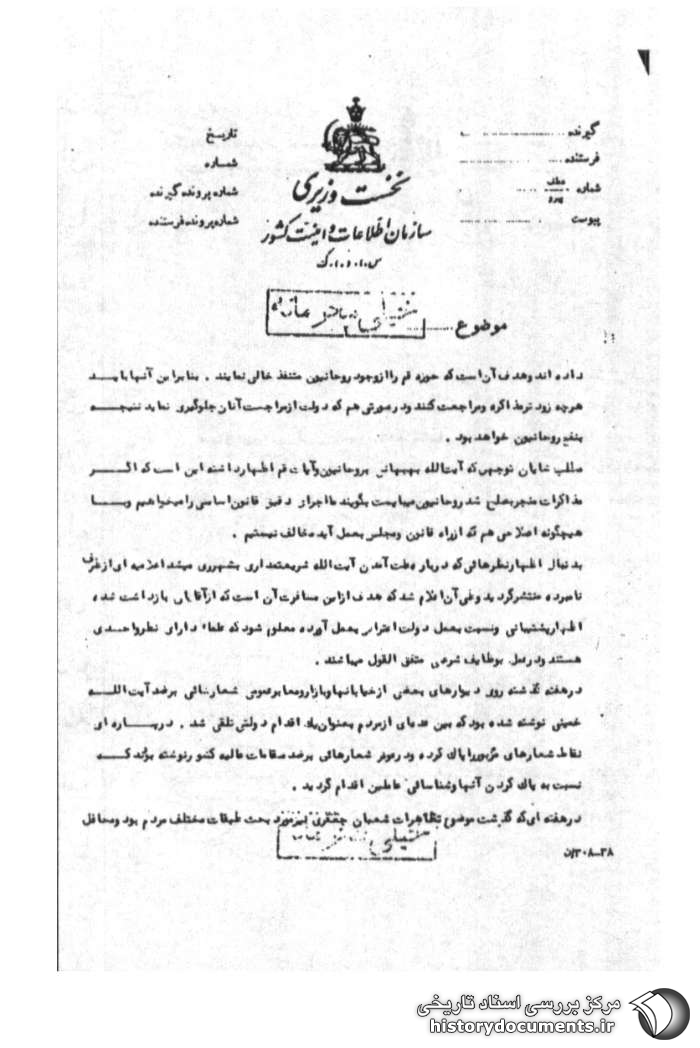 گیرنده
فرستنده
شماره عطف پیرو
پیوست
تاریخ
شماره
شماره پرونده گیرنده
شماره پرونده فرستنده
نخست وزیری
سازمان اطلاعات و امنیت کشور
س.ا.و.ا.ک
موضوع
داده اند و هدف آن است که حوزه قم را از وجود روحانیون متنفذ خالی نمایند . بنابراین آنها باید
هرچه زودتر مذاکره و مراجعت کنند و در صورتی هم که دولت از مراجعت آنان جلوگیری نماید نتیجه
بنفع روحانیون خواهد بود .
مطلب شایان توجهی که آیت الله بهبهانی بروحانیون و آیات قم اظهار داشته این است که اگر
مذاکرات منجر بصلح شد روحانیون میبایست بگویند ما اجرای دقیق قانون اساسی را میخواهیم و با
هیچگونه اصلاحی هم که از راه قانون و مجلس بعمل آید مخالف نیستیم .
بدنبال اظهارنظرهائی که درباره علت آمدن آیت الله شریعتمداری بشهرری میشد اعلامیه ای از طرف
نامبرده منتشر گردید و طی آن اعلام شد که هدف از این مسافرت آن است که از آقایان بازداشت شده
اظهار پشتیبانی و نسبت بعمل دولت اعتراض بعمل آورده معلوم شود که علماء دارای نظر واحدی
هستند و در عمل بوظایف شرعی متفق القول میباشند .
در هفته گذشته روی دیوارهای بعضی از خیابانها و بازار و معابر عمومی شعارهائی برضد آیت الله
خمینی نوشته شده بود که بین عده ای از مردم بعنوان یک اقدام دولتی تلقی شد . در پاره ای
نقاط شعارهای مزبور را پاک کرده و در عوض شعارهائی برضد مقامات عالیه کشور نوشته بودند که
نسبت به پاک کردن آنها و شناسائی عاملین اقدام گردید .
در هفته ای که گذشت موضوع تظاهرات شعبان جعفری نیز مورد بحث طبقات مختلف مردم بود و محافل
۳۰۸-۳۸/ن
مرکز بررسی اسناد تاریخی
historydocuments.ir